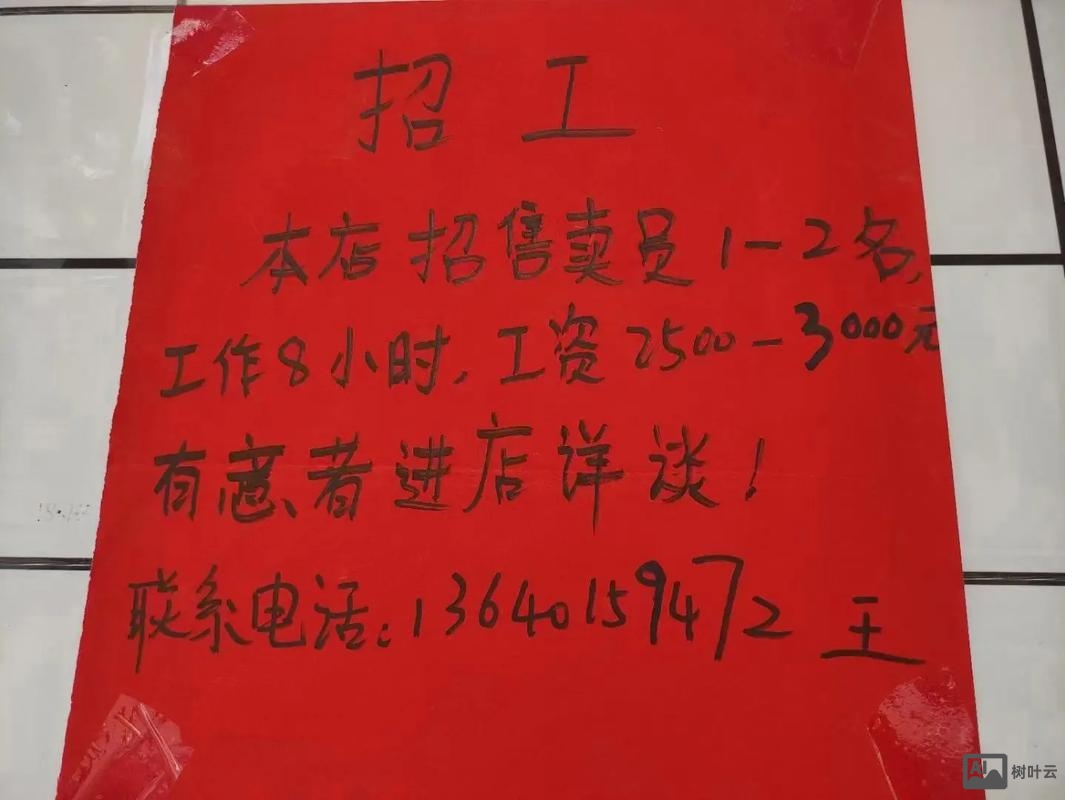 招工
本店招售卖员1-2名,
工作8小时,工资2500-3000元
有意者进店详谈!
联系电话:13640159472 王
AI 树叶云